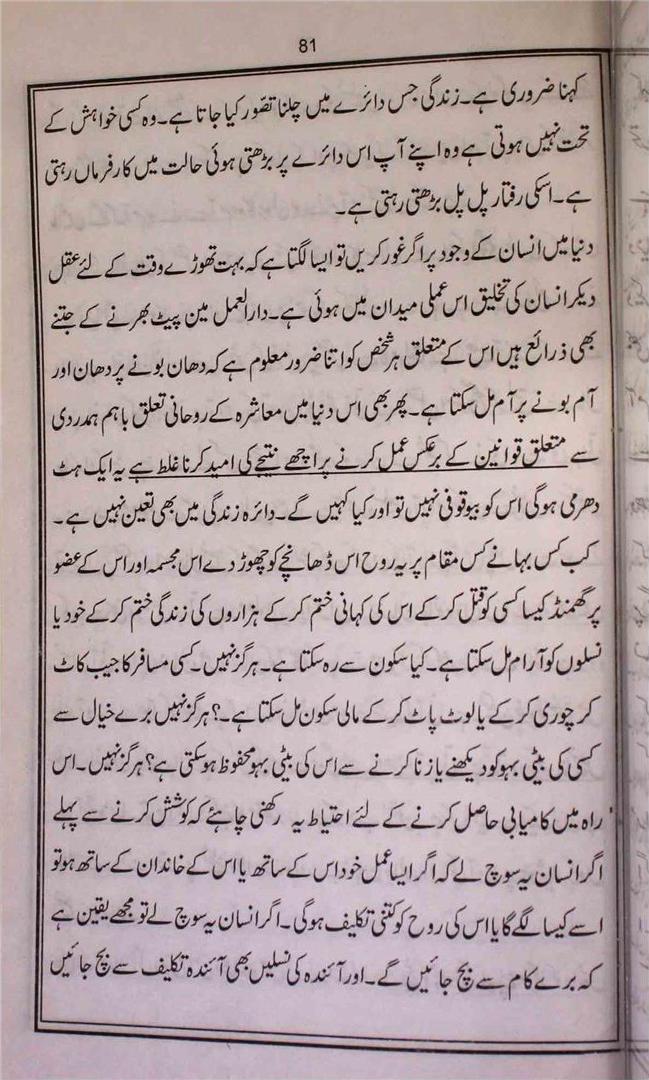 81
کہنا ضروری ہے۔ زندگی جس دائرے میں چلنا تصّور کیا جاتا ہے۔ وہ کسی خواہش کے
تحت نہیں ہوتی ہے وہ اپنے آپ اس دائرے پر بڑھتی ہوئی حالت میں کارفرماں رہتی
ہے۔ اسکی رفتار پل پل بڑھتی رہتی ہے۔
دنیا میں انسان کے وجود پر اگر غور کریں تو ایسا لگتا ہے کہ بہت تھوڑے وقت کے لئے عقل
دیکر انسان کی تخلیق اس عملی میدان میں ہوئی ہے۔ دارالعمل مین پیٹ بھرنے کے جتنے
بھی ذرائع ہیں اس کے متعلق ہر شخص کو اتنا ضرور معلوم ہے کہ دھان بونے پر دھان اور
آم بونے پر آم مل سکتا ہے۔ پھر بھی اس دنیا میں معاشرہ کے روحانی تعلق باہم ہمدردی
سے متعلق قوانین کے برعکس عمل کرنے پر اچھے نتیجے کی امید کرنا غلط ہے یہ ایک ہٹ
دھرمی ہوگی اس کو بیوقوفی نہیں تو اور کیا کہیں گے۔ دائرہ زندگی میں بھی تعین نہیں ہے۔
کب کس بہانے کس مقام پر یہ روح اس ڈھانچے کو چھوڑ دے اس مجسمہ اور اس کے عضو
پر گھمنڈ کیسا کسی کو قتل کرکے اس کی کہانی ختم کرکے ہزاروں کی زندگی ختم کرکے خود یا
نسلوں کو آرام مل سکتا ہے۔ کیا سکون سے رہ سکتا ہے۔ ہرگز نہیں۔ کسی مسافر کا جیب کاٹ
کر چوری کرکے یا لوٹ پاٹ کرکے مالی سکون مل سکتا ہے۔؟ ہرگز نہیں برے خیال سے
کسی کی بیٹی بہو کو دیکھنے یا زنا کرنے سے اس کی بیٹی بہو محفوظ ہوسکتی ہے؟ ہرگز نہیں۔ اس
راہ میں کامیابی حاصل کرنے کے لئے احتیاط یہ رکھنی چاہئے کہ کوشش کرنے سے پہلے
اگر انسان یہ سوچ لے کہ اگر ایسا عمل خود اس کے ساتھ یا اس کے خاندان کے ساتھ ہو تو
اسے کیسا لگے گا یا اس کی روح کو کتنی تکلیف ہوگی۔ اگر انسان یہ سوچ لے تو مجھے یقین ہے
کہ برے کام سے بچ جائیں گے۔ اور آئندہ کی نسلیں بھی آئندہ تکلیف سے بچ جائیں